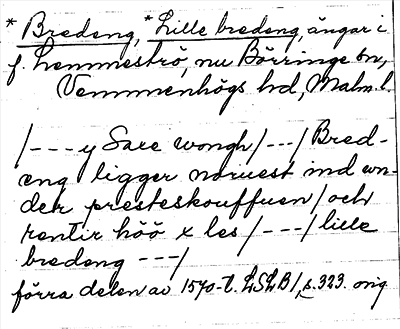 * Bredeng, * Lille bredeng, ängar i
f. Lemmeströ, nu Börringe sn,
Vemmenhögs hd, Malm. l.
/---y Sare wongh/---/Bred-
eng ligger noruest ind wn-
der presteskouffuen/och
rentir höö x les/---/lille
bredeng ---/
förra delen av 1570-t. LSLB1, s. 323. orig